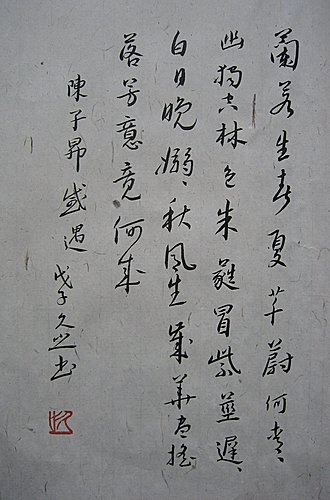 蘭若生春夏芊蔚何青、
幽獨空林色朱蕤冒紫莖遲、
白日晚嫋、秋風生歲華盡搖
落芳意竟何成
陳子昂感遇 戊子久之书